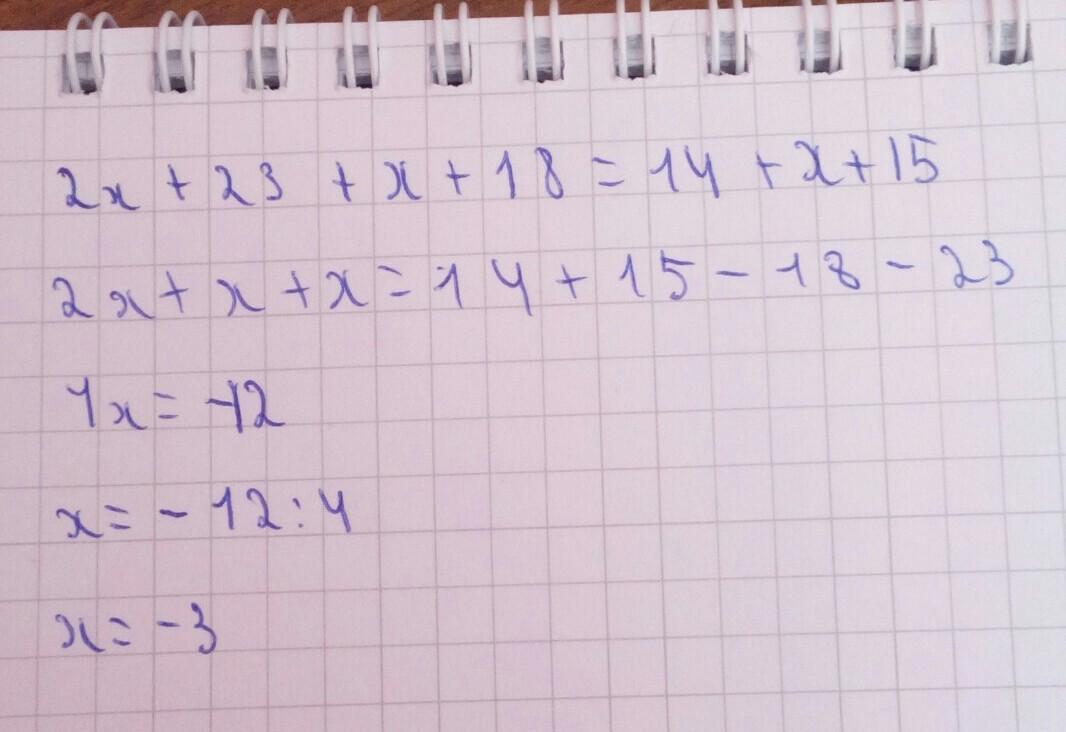 2x + 23 + x + 18 = 14 + x + 15
2x + x + x = 14 + 15 - 18 - 23
4x = -12
x = - 12 : 4
x = - 3